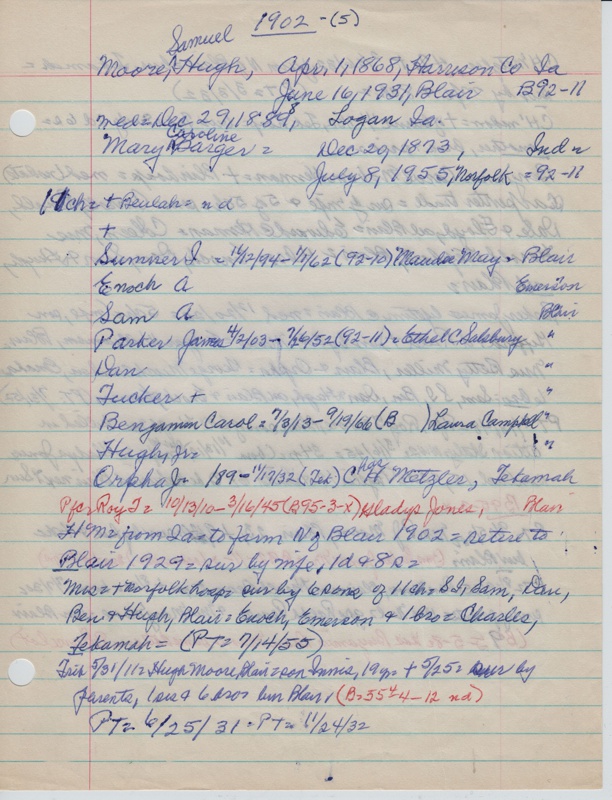 1902 - (5)
Samuel
Moore, Hugh, Apr, 1, 1868, Harrison Co Ia
June 16, 1931, Blair B92-11
med = Dec 29, 1889, Logan Ia.
Caroline
Mary Barger = Dec 20, 1873, Ind =
July 8, 1955, Norfolk = 92-11
11 ch = + Beulah = nd
+
Sumner I = 11/12/94 - 1/1/62 (92-10) Maudie May = Blair
Enoch A Emerson
Sam A Blair
Parker James 4/2/03 - 7/26/52 (92-11) = Ethel C Salsbury "
Dan "
Tucker + "
Benjamin Carol = 7/3/13 - 9/19/66 (B ) Laura Campbell "
Hugh, Jr = "
Orpha J = 189 - 11/17/32 (Tek) Chas H. Metzler, Tekamah
Pfc = Roy T = 10/13/10 - 3/16/45 (B95-3-X) Gladys Jones, Blair
H M = from Ia = to farm N of Blair 1902 = retire to
Blair 1929 = sur by wife, 1 d & 8 s =
Mrs = + Norfolk hosp = sur by 6 sons of 11 ch = S I, Sam, Dan,
Ben & Hugh, Blair = Enoch, Emerson & 1 bro = Charles,
Tekamah = (PT = 7/14/55)
Trib 5/31/11 = Hugh Moore, Blair = son Innis, 19 yr = + 5/25 = sur by
parents, 1 sis & 6 bros = bur Blair, (B = 55 4-12 nd)
PT = 6/25/31 = PT = 11/24/32